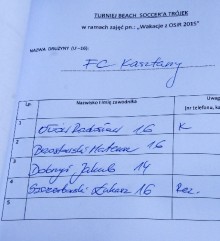 TURNIEJ BEACH SOCCER'A TRÓJEK
w ramach zajęć pn.: „Wakacje z OSiR 2015"
NAZWA DRUŻYNY (U-16):
FC Kasztany
Lp. Nazwisko i imię zawodnika Uwag
(nr telefonu, ka
1 16 K
2 Mateusz 16
3 Jakub 14
4 Szczerbowski Łukasz 16 Rez.
5